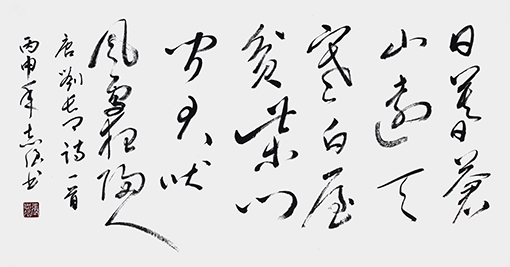 日暮蒼
山遠天
寒白屋
貧柴門
聞犬吠
風雪夜歸人
唐劉長卿詩一首
丙申年志书